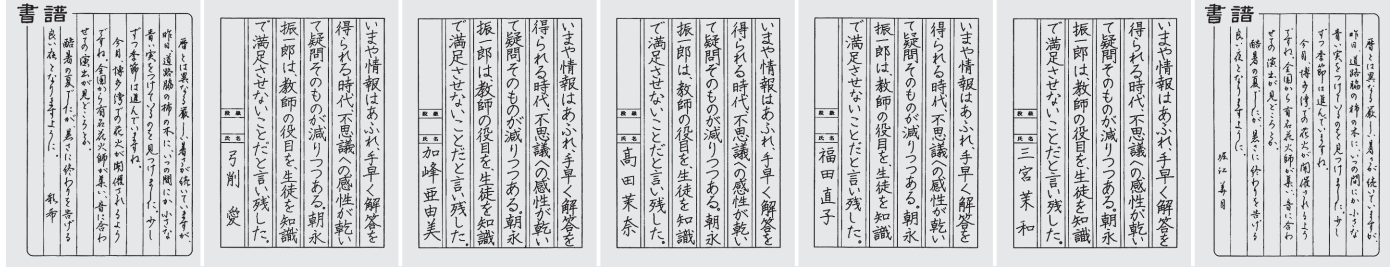 書譜
暦とは異なる厳しい暑さが続いていますが、
昨日、道路脇の柿の木に、いつの間にか小さな
青い実をつけているのを見つけました。少し
ずつ季節は進んでいますね。
今日、博多湾での花火が開催されるよう
ですね。全国から有名花火師が集い、音に合わ
せての演出が見どころとか。
酷暑の夏でしたが、暑さに終わりを告げる
良い夜となりますように。
いまや情報はあふれ、手早く解答を
得られる時代、不思議への感性が乾い
て疑問そのものが減りつつある。朝永
振一郎は、教師の役目を、生徒を知識
で満足させないことだと言い残した。
段級
氏名
弓削 愛
いまや情報はあふれ、手早く解答を
得られる時代、不思議への感性が乾い
て疑問そのものが減りつつある。朝永
振一郎は、教師の役目を、生徒を知識
で満足させないことだと言い残した。
段級
氏名
加峰 亜由美
いまや情報はあふれ、手早く解答を
得られる時代、不思議への感性が乾い
て疑問そのものが減りつつある。朝永
振一郎は、教師の役目を、生徒を知識
で満足させないことだと言い残した。
段級
氏名
髙田 茉奈
いまや情報はあふれ、手早く解答を
得られる時代、不思議への感性が乾い
て疑問そのものが減りつつある。朝永
振一郎は、教師の役目を、生徒を知識
で満足させないことだと言い残した。
段級
氏名
福田 直子
いまや情報はあふれ、手早く解答を
得られる時代、不思議への感性が乾い
て疑問そのものが減りつつある。朝永
振一郎は、教師の役目を、生徒を知識
で満足させないことだと言い残した。
段級
氏名
三宮 茉和
書譜
暦とは異なる厳しい暑さが続いていますが、
昨日、道路脇の柿の木に、いつの間にか小さな
青い実をつけているのを見つけました。少し
ずつ季節は進んでいますね。
今日、博多湾での花火が開催されるよう
ですね。全国から有名花火師が集い、音に合わ
せての演出が見どころとか。
酷暑の夏でしたが、暑さに終わりを告げる
良い夜となりますように。
堀江 美月